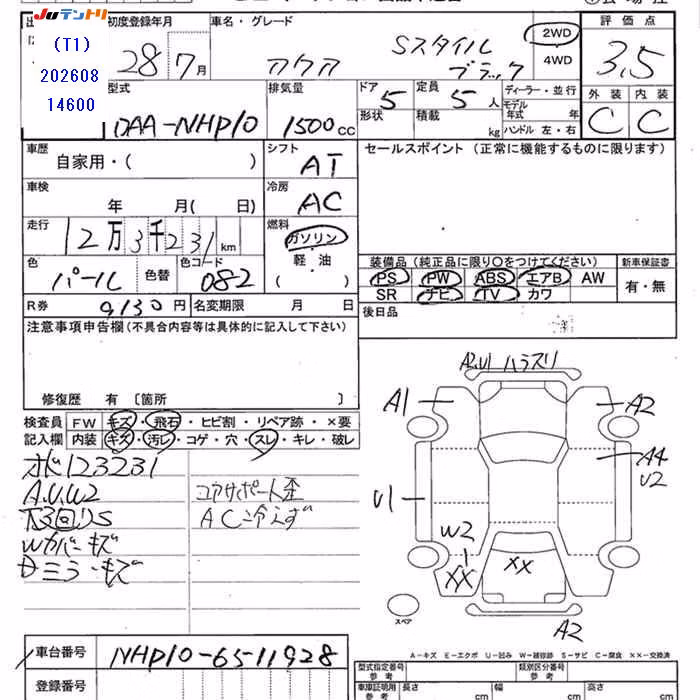 JUテントリ
(T1)
202608
14600
初度登録年月
28 7月
車名・グレード
アクア Sスタイル
ブラック
2WD
4WD
評価点
3.5
外装 内装
C C
型式
DAA-NHP10
排気量
1500 cc
ドア 5
形状
定員 5 人
積載 kg
ディーラー・並行
モデル
年式 年
ハンドル 左・右
車歴
自家用・( )
シフト
AT
セールスポイント (正常に機能するものに限ります)
車検
年 月( 日)
冷房
AC
走行
12万3千231 km
燃料
ガソリン
軽・油
( )
色
パール
色替
色コード
082
装備品 (純正品に限り○をつけてください)
PS PW ABS エアB AW
SR ナビ TV カワ
新車保証書
有・無
R券 9130円 名変期限 月 日
後日品
注意事項申告欄 (不具合内容等は具体的に記入して下さい)
修復歴 有 〔箇所 〕
検査員
記入欄
FW キズ・飛石・ヒビ割・リペア跡・×要
内装 キズ・汚レ・コゲ・穴・スレ・キレ・破レ
メーター123231
A.U.W2
下回りS
Wカバーキズ
Dミラーキズ
コアサポート歪
AC冷えず
A2.U1 ハラスリ
A1
A2
A4
U2
U1
W2
XX
XX
A2
スペア
A-キズ E-エクボ U-凹み W-補修跡 S-サビ C-腐食 XX-交換済
車台番号 NHP10-6511928
登録番号
型式指定番号
参考
類別区分番号
参考
車庫証明用
参考
長さ cm
幅 cm
高さ cm